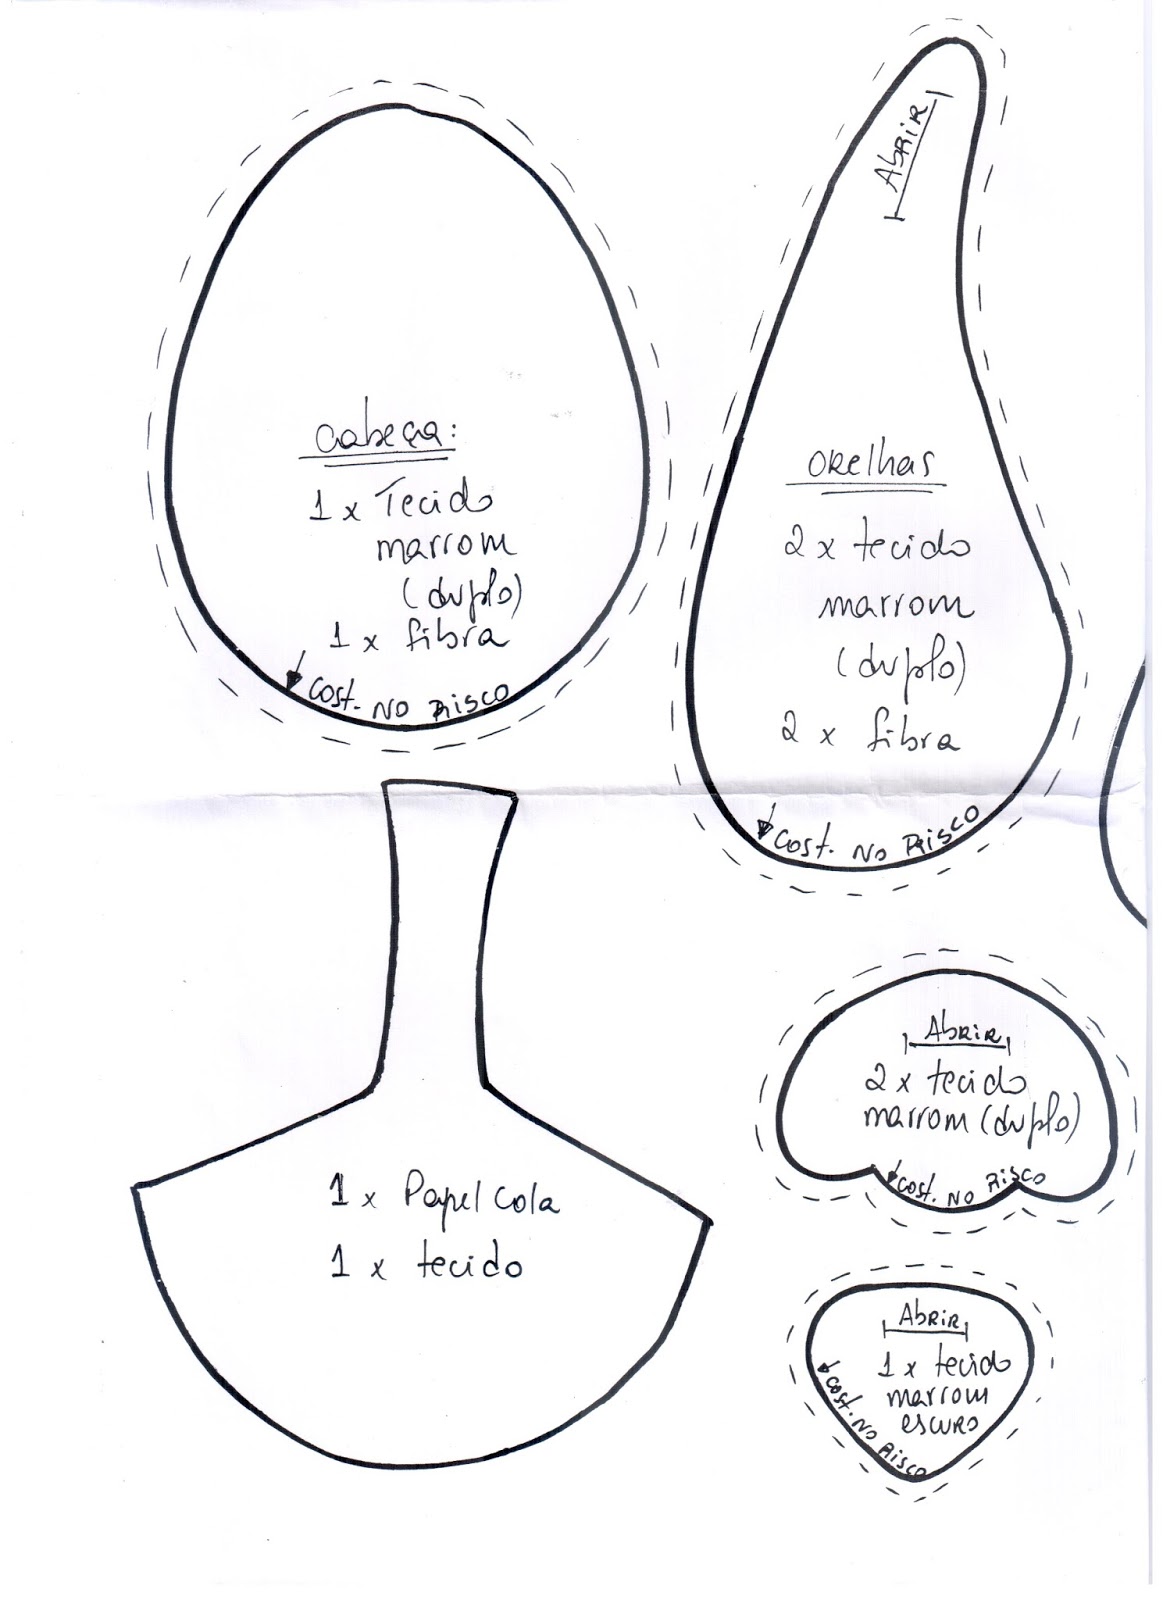 cabeça:
1 x Tecido
marrom
(duplo)
1 x fibra
cost. no risco
Abrir
orelhas
2 x tecido
marrom
(duplo)
2 x fibra
cost. no risco
1 x Papel cola
1 x tecido
Abrir
2 x tecido
marrom (duplo)
cost. no risco
Abrir
1 x tecido
marrom
escuro
cost. no risco